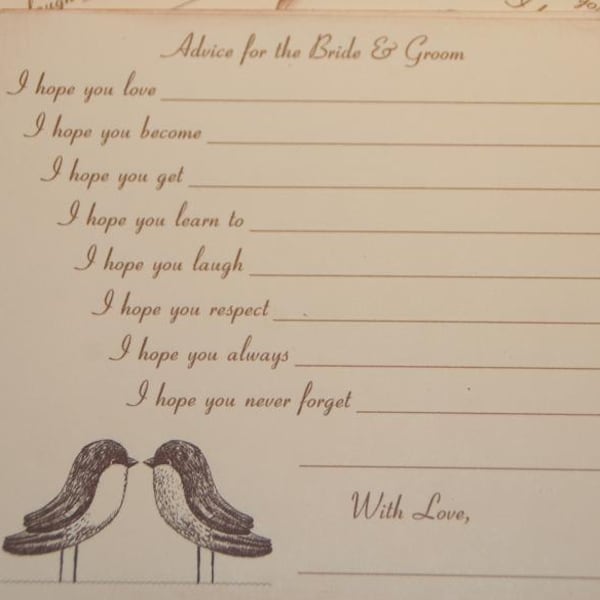 laugh
Advice for the Bride & Groom
I hope you love
I hope you become
I hope you get
I hope you learn to
I hope you laugh
I hope you respect
I hope you always
I hope you never forget
With Love,